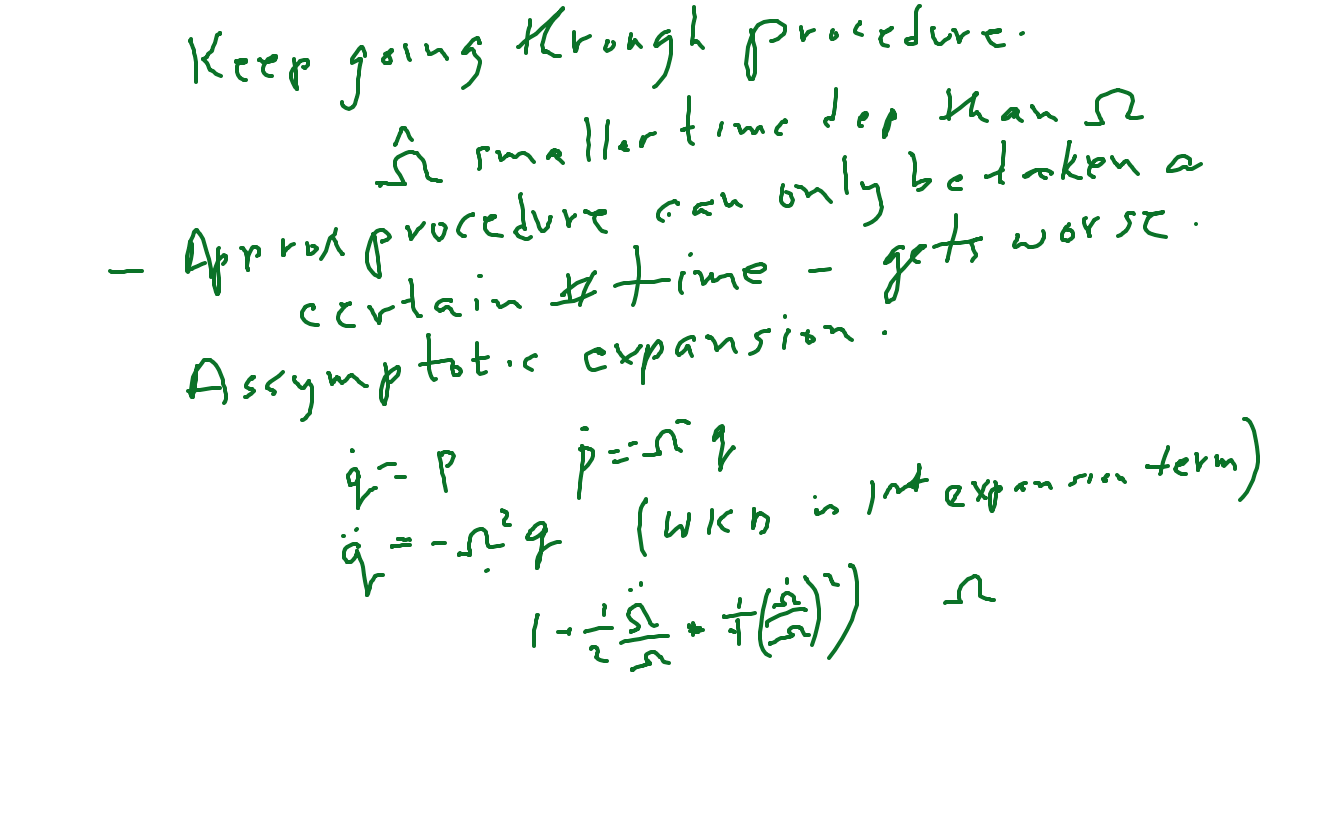 Keep going through procedure.
Ω̂ smaller time dep than Ω
— Approx procedure can only be taken a
certain # time – gets worse.
Assymptotic expansion.
q̇ = p ṗ = -Ω² q
q̈ = -Ω² q (WKB is 1st expansion term)
1 - 1/2 Ω̈/Ω + (Ω̇/Ω)²) Ω